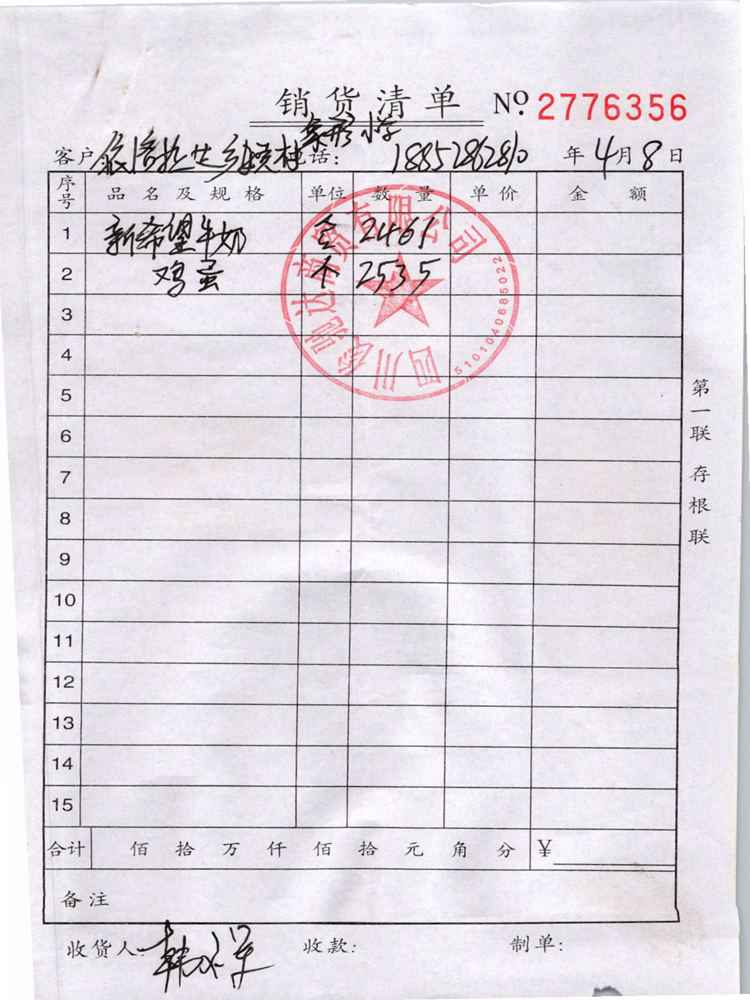 销货清单 № 2776356
小学
客户 话: 18852862810 年 4月8日
序号 品名及规格 单位 数量 单价 金额
1 新希望牛奶 合 2461
2 鸡蛋 个 2535
3
4
5
6
7
8
9
10
11
12
13
14
15
合计 佰拾万仟佰拾元角分 ¥
备注
收货人: 收款: 制单:
第一联 存根联
商贸有限公司
5101040685022